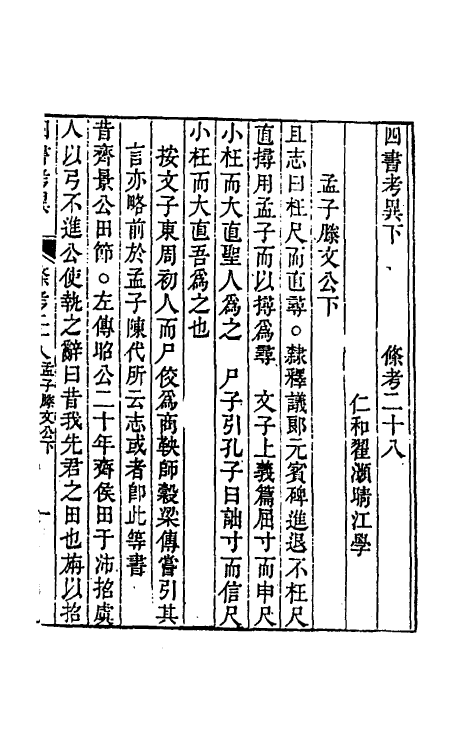 四書考異下　條考二十八
仁和翟灝晴江學
孟子滕文公下
且志曰枉尺而直尋○隸釋議郞元賓碑進退不枉尺
直撏用孟子而以撏爲尋　文子上義篇屈寸而申尺
小枉而大直聖人爲之　尸子引孔子曰詘寸而信尺
小枉而大直吾爲之也
按文子東周初人而尸佼爲商鞅師穀梁傳嘗引其
言亦略前於孟子陳代所云志或者卽此等書
昔齊景公田節○左傳昭公二十年齊侯田于沛招虞
人以弓不進公使執之辭曰昔我先君之田也旃以招
四書考異　條考二十八孟子滕文公下　一